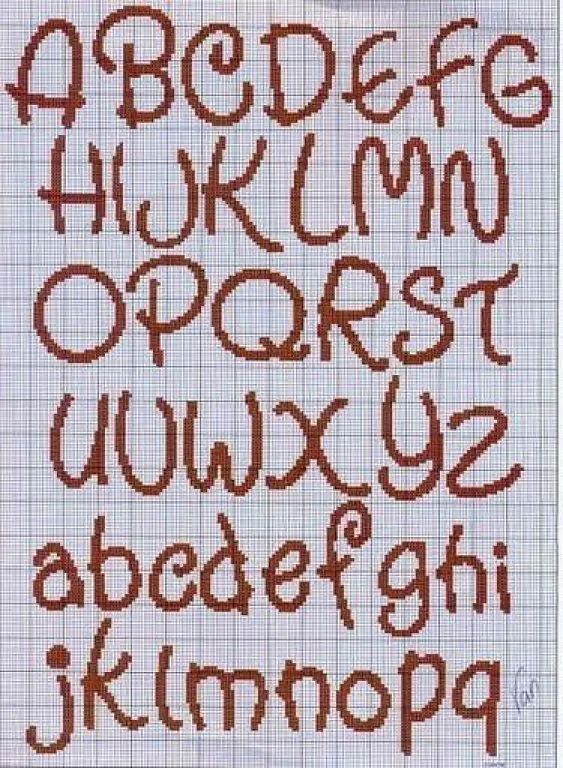 ABCDEFG
HIJKLMN
OPQRST
UVWXYZ
abcdefghi
jklmnopq
Van